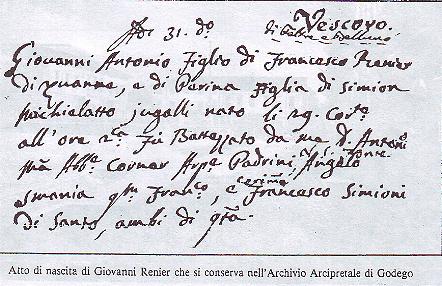 Adi 31. do Vescovo.
di Feltre e Belluno
Giovanni Antonio Figlio di Francesco Renier
di Zuanne, e di Perina Figlia di Simion
Pachielatto jugalli nato li 29. Corte
all'ore 2e Fù Battezzato da me D. Antonio
Ma Abbe Cornar Arpe Padrini Angelo
Smania qm Franco, e Francesco Simioni
di Santo, ambi di qta.
Atto di nascita di Giovanni Renier che si conserva nell'Archivio Arcipretale di Godego